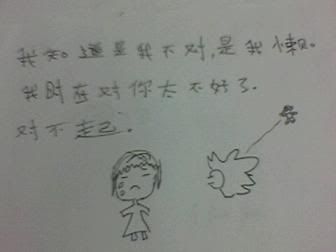 我知道是我不对,是我懒。
我时在对你太不好了.
对不起己.